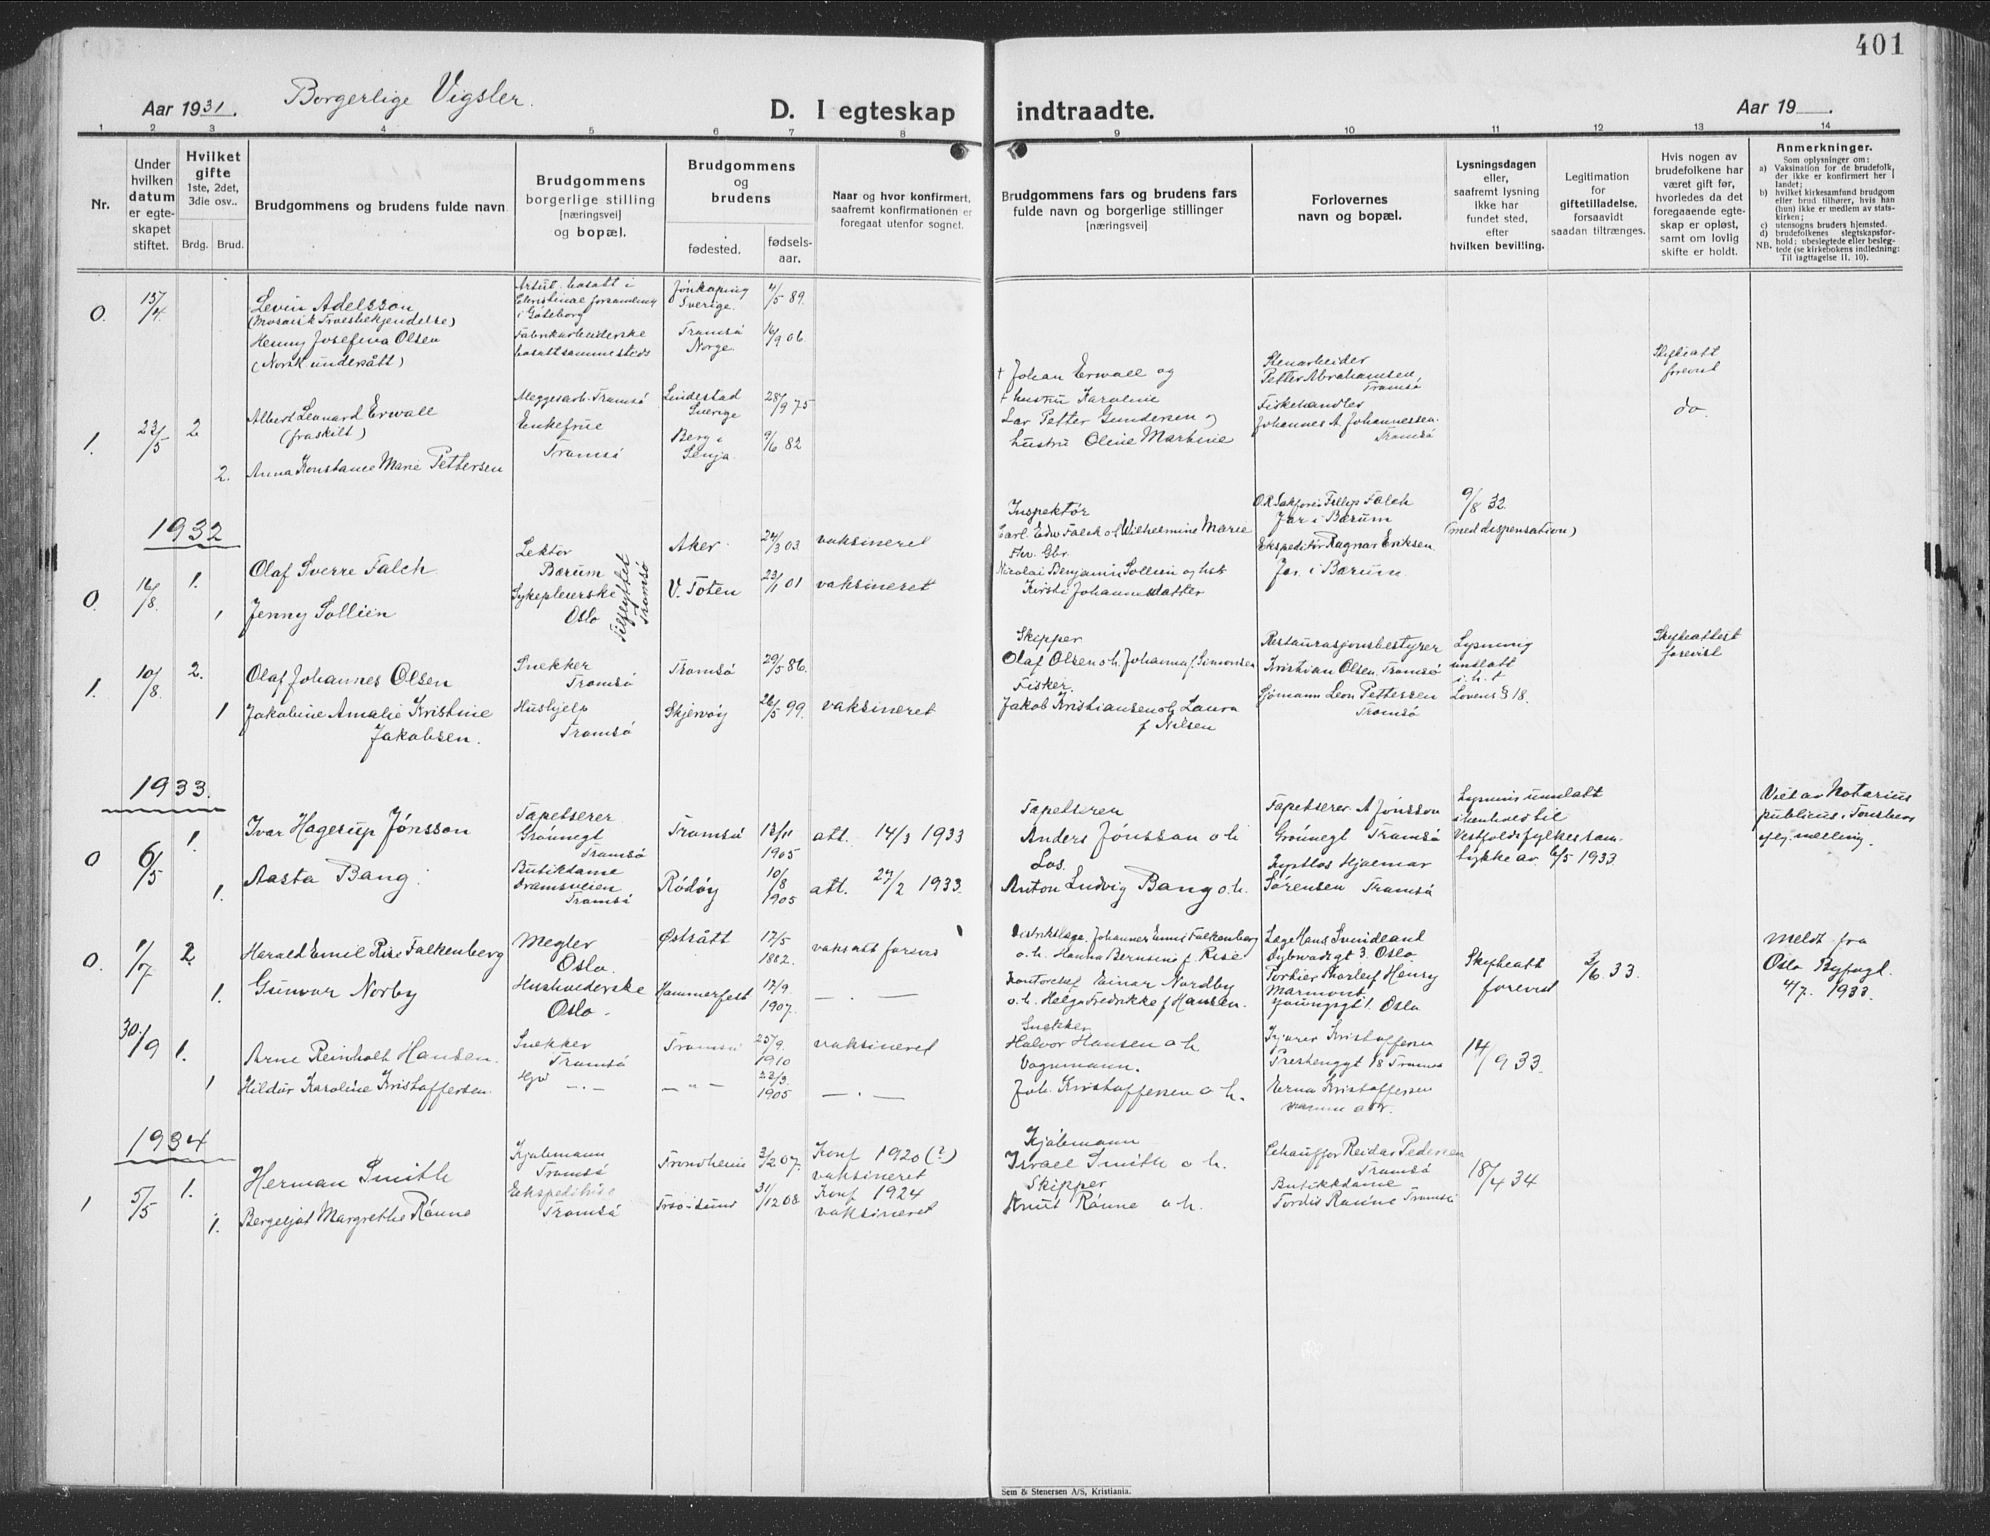 401
Aar 1931.
Borgerlige Vigsler.
D. I egteskap
indtraadte.
Aar 19
1 2 3 4 5 6 7 8 9 10 11 12 13 14
Nr.
Under
hvilken
datum
er egte-
skapet
stiftet.
Hvilket
gifte
1ste, 2det,
3die osv..
Brdg. Brud.
Brudgommens og brudens fulde navn
Brudgommens
borgerlige stilling
[næringsvei]
og bopæl.
Brudgommens
og
brudens
fødested.
fødsels-
aar.
Naar og hvor konfirmert,
saafremt konfirmationen er
foregaat utenfor sognet.
Brudgommens fars og brudens fars
fulde navn og borgerlige stillinger
[næringsvei]
Forlovernes
navn og bopæl.
Lysningsdagen
eller,
saafremt lysning
ikke har
fundet sted,
efter
hvilken bevilling.
Legitimation
for
giftetilladelse,
forsaavidt
saadan tiltrænges.
Hvis nogen av
brudefolkene har
været gift før,
hvorledes da det
foregaaende egte-
skap er opløst,
samt om lovlig
skifte er holdt.
Anmerkninger.
Som oplysninger om:
a) Vaksination for de brudefolk,
der ikke er konfirmert her i
landet;
b) hvilket kirkesamfund brudgom
eller brud tilhører, hvis han
(hun) ikke er medlem av stats-
kirken;
c) utensogns bruders hjemsted.
d) brudefolkenes slegtskapsfor-
hold: ubeslegtede eller besleg-
tede (se kirkebokens indledning:
NB. Til iagttagelse II, 10).
0. 15/4
Levin Adelsson
(Mosaisk Troesbekjendelse)
Henny Josefina Olsen
(Norsk undersått)
bosatt i
Christinae forsamling
i Göteborg
Fabrikarbeiderske
bosatt sammesteds
Jönkøping
Sverige.
Tromsø
Norge.
4/5 89.
16/9 06
1. 23/5 2
Albert Leonard Erwall
(fraskilt)
2. Anna Konstance Marie Pettersen
Meggesarb. Tromsø
Enkefrue
Tromsø
Lindestad
Sverige
Berg i
Senja.
28/9 75
9/6 82
+ Johan Erwall og
+ hustru Karoline
Lar Petter Gundersen og
hustru Oline Martine
Stenarbeider
Petter Abrahamsen,
Tromsø
Fiskehandler
Johannes A. Johannessen.
Tromsø
Skifteatt
forevist
do.
1932
0. 16/8 1.
Olaf Sverre Falch
1 Jenny Sollien
Lektor
Bærum
Sykepleierske
Oslo
Tilflyttet
Tromsø
Aker.
V. Toten
24/3 03
23/1 01
vaksineret
vaksineret
Inspektør
Carl Edw Falck og Wilhelmine Marie
Fhv. Gbr.
Nicolai Benjamin Sollien og hst
Kirsti Johannesdatter
O.R.sakfører Fillip Falch
Jar i Bærum
Ekspeditør Ragnar Eriksen.
Jar i Bærum
9/8 32
(med dispensation)
1. 10/8 2.
Olaf Johannes Olsen
1 Jakobine Amalie Kristine
Jakobsen.
Snekker
Tromsø
Hushjelp
Tromsø
Tromsø
Skjervøy
29/5 86.
26/5 99.
vaksineret
Skipper
Olaf Olsen o h. Johanna f. Simonsen
Fisker.
Jakob Kristiansen o h Laura
f Nilsen
Restaurasjonsbestyrer
Kristian Olsen, Tromsø
Sjømann Leon Pettersen
Tromsø
Lysning
unslatt
i. h. t
Lovens § 18.
Skifteattest
forevist
1933.
0 6/5 1.
Ivar Hagerup Jónsson
1. Aasta Bang.
Tapetserer
Grønnegt
Tromsø
Butikdame
Tromsø
Tromsø
Rødøy
13/11
1905
10/8
1905
att. 14/3 1933
att. 27/2 1933.
Tapetserer
Anders Jónsson o h
Los.
Anton Ludvig Bang o. h.
Tapetserer A Jónsson
Grønnegt Tromsø
Kystlos Hjalmar
Sørensen Tromsø
Lysning unslatt
i henhold til
Vestfolds fylkes sam-
tykke av 6/5 1933.
Viet av Notarius
publicus i Tønsberg
efg. melding.
0. 1/7 2
Harald Emil Rise Falkenberg
1. Gunvor Norby
Megler
Oslo.
Oslo.
Østrått
Hammerfest
17/5
1882.
17/9.
1907.
vaksatt forevist
— . —
Distriktslæge Johannes Emil Falkenberg
o. h. Hanna Bernsine f. Rise
Kontorchef Einar Nordby
o. h. Helga Fredrikke f Hansen.
Læge Hans Svindland
Dybwadsgt 3. Oslo.
Portier Thorleif Henry
Marmont
Youngsgt 1. Oslo
Skifteatt
forevist
3/6. 33.
Meldt fra
Oslo Byfogd.
4/7. 1933.
30./9 1.
Arne Reinholt Hansen.
1 Hildur Karoline Kristoffersen.
Snekker
Tromsø
— . —
Tromsø
— " —
25/9.
1910
22/3.
1905
vaksineret
— . —
Snekker
Halvor Hansen o h
Vognmann.
Joh. Kristoffersen o h.
Kristoffersen
Prestengt 18 Tromsø
Erna Kristoffersen
samme adr.
14/9 33.
1934
1 5/5 1.
Herman Smith
1. Bergeljot Margrethe Rønne
Kjølemann
Tromsø
Ekspeditrise
Tromsø
Trondheim
3/2 07.
31/12 08
Konf 1920 (?)
vaksineret
Konf 1924
vaksineret
Kjølemann
Israel Smith o h.
Skipper
Knut Rønne o h.
Chauffør Reidar Pedersen
Tromsø
Butikkdame
Tordis Rønne Tromsø
18/4 34
Sem & Stenersen A/S, Kristiania.